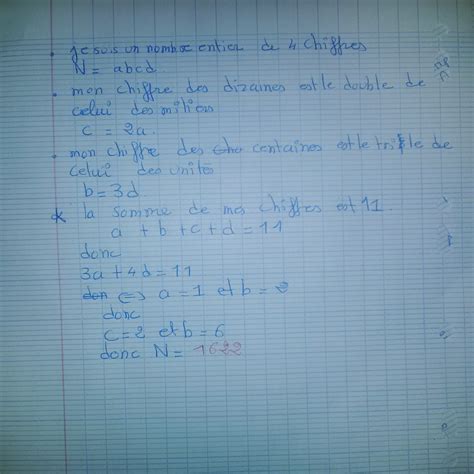 . Je suis un nombre entier de 4 chiffres
N = abcd
. mon chiffre des dizaines est le double de
celui des milliers
c = 2a.
. mon chiffre des centaines est le triple de
celui des unités
b = 3d
* la somme de mes chiffres est 11.
a + b + c + d = 11
donc
3a + 4d = 11
<=> a = 1 et b =
donc
c = 2 et b = 6
donc N = 1622